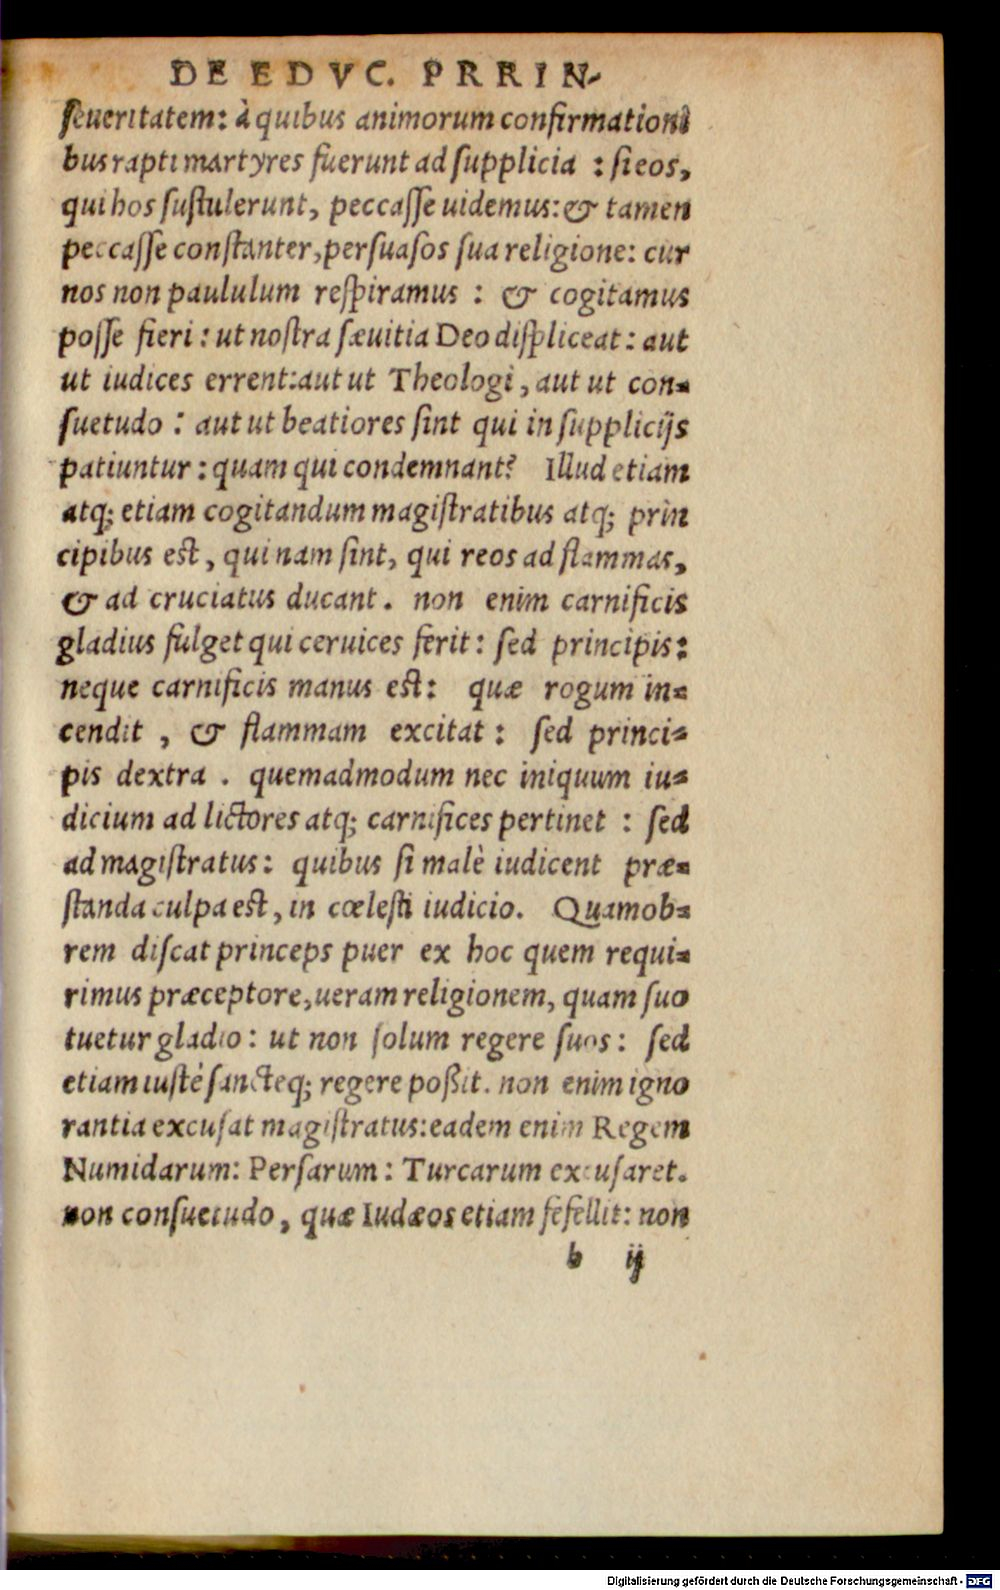 DE EDVC. PRRIN-
ſeueritatem: à quibus animorum confirmationi
bus rapti martyres fuerunt ad ſupplicia : ſi eos,
qui hos ſuſtulerunt, peccaſſe uidemus: & tamen
peccaſſe conſtanter, perſuaſos ſua religione: cur
nos non paululum reſpiramus : & cogitamus
poſſe fieri : ut noſtra ſæuitia Deo diſpliceat : aut
ut iudices errent: aut ut Theologi, aut ut con-
ſuetudo : aut ut beatiores ſint qui in ſupplicijs
patiuntur : quam qui condemnant? Illud etiam
atq; etiam cogitandum magiſtratibus atq; prin
cipibus eſt, qui nam ſint, qui reos ad flammas,
& ad cruciatus ducant. non enim carnificis
gladius fulget qui ceruices ferit: ſed principis:
neque carnificis manus eſt: quæ rogum in-
cendit , & flammam excitat : ſed princi-
pis dextra . quemadmodum nec iniquum iu-
dicium ad lictores atq; carnifices pertinet : ſed
ad magiſtratus: quibus ſi malè iudicent præ-
ſtanda culpa eſt, in cœleſti iudicio. Quamob-
rem diſcat princeps puer ex hoc quem requi-
rimus præceptore, ueram religionem, quam ſuo
tuetur gladio : ut non ſolum regere ſuos : ſed
etiam iuſtè ſancteq; regere poßit. non enim igno
rantia excuſat magiſtratus: eadem enim Regem
Numidarum: Perſarum : Turcarum excuſaret.
non conſuetudo, quæ Iudæos etiam fefellit: non
b ij
Digitalisierung gefördert durch die Deutsche Forschungsgemeinschaft - DFG